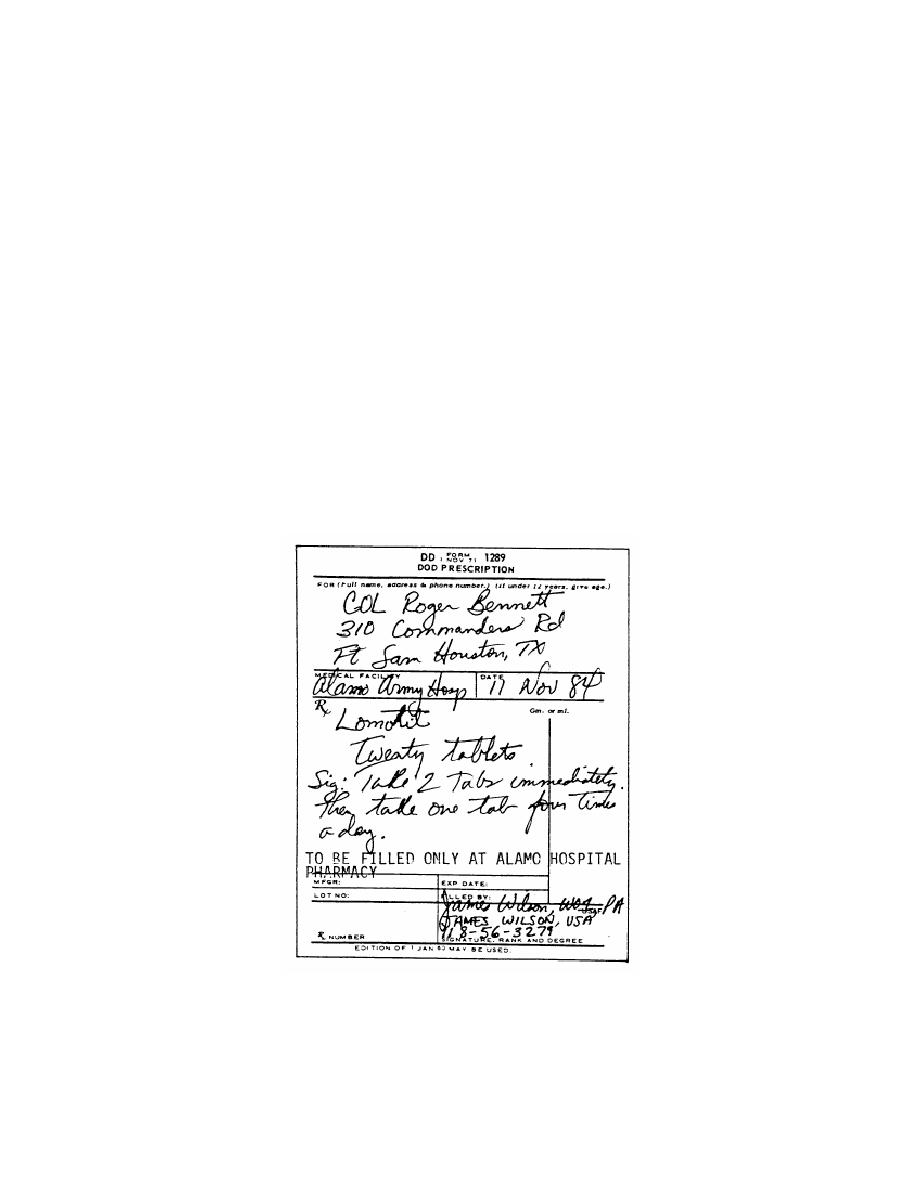 DD FORM 1 NOV 71 1289
DOD PRESCRIPTION
FOR (Full name, address & phone number.) (If under 12 years, give age.)
COL Roger Bennett
310 Commanders Rd
Ft Sam Houston, TX
MEDICAL FACILITY DATE
Alamo Army Hosp 17 Nov 84
Rx Gm. or ml.
Lomotil
Twenty tablets.
Sig: Take 2 Tabs immediately.
Then take one tab four times
a day.
TO BE FILLED ONLY AT ALAMO HOSPITAL
PHARMACY
MFGR: EXP DATE:
LOT NO: FILLED BY:
James Wilson, WO1 PA
JAMES WILSON, USA
118-56-3279
R NUMBER SIGNATURE, RANK AND DEGREE
EDITION OF 1 JAN 60 MAY BE USED.